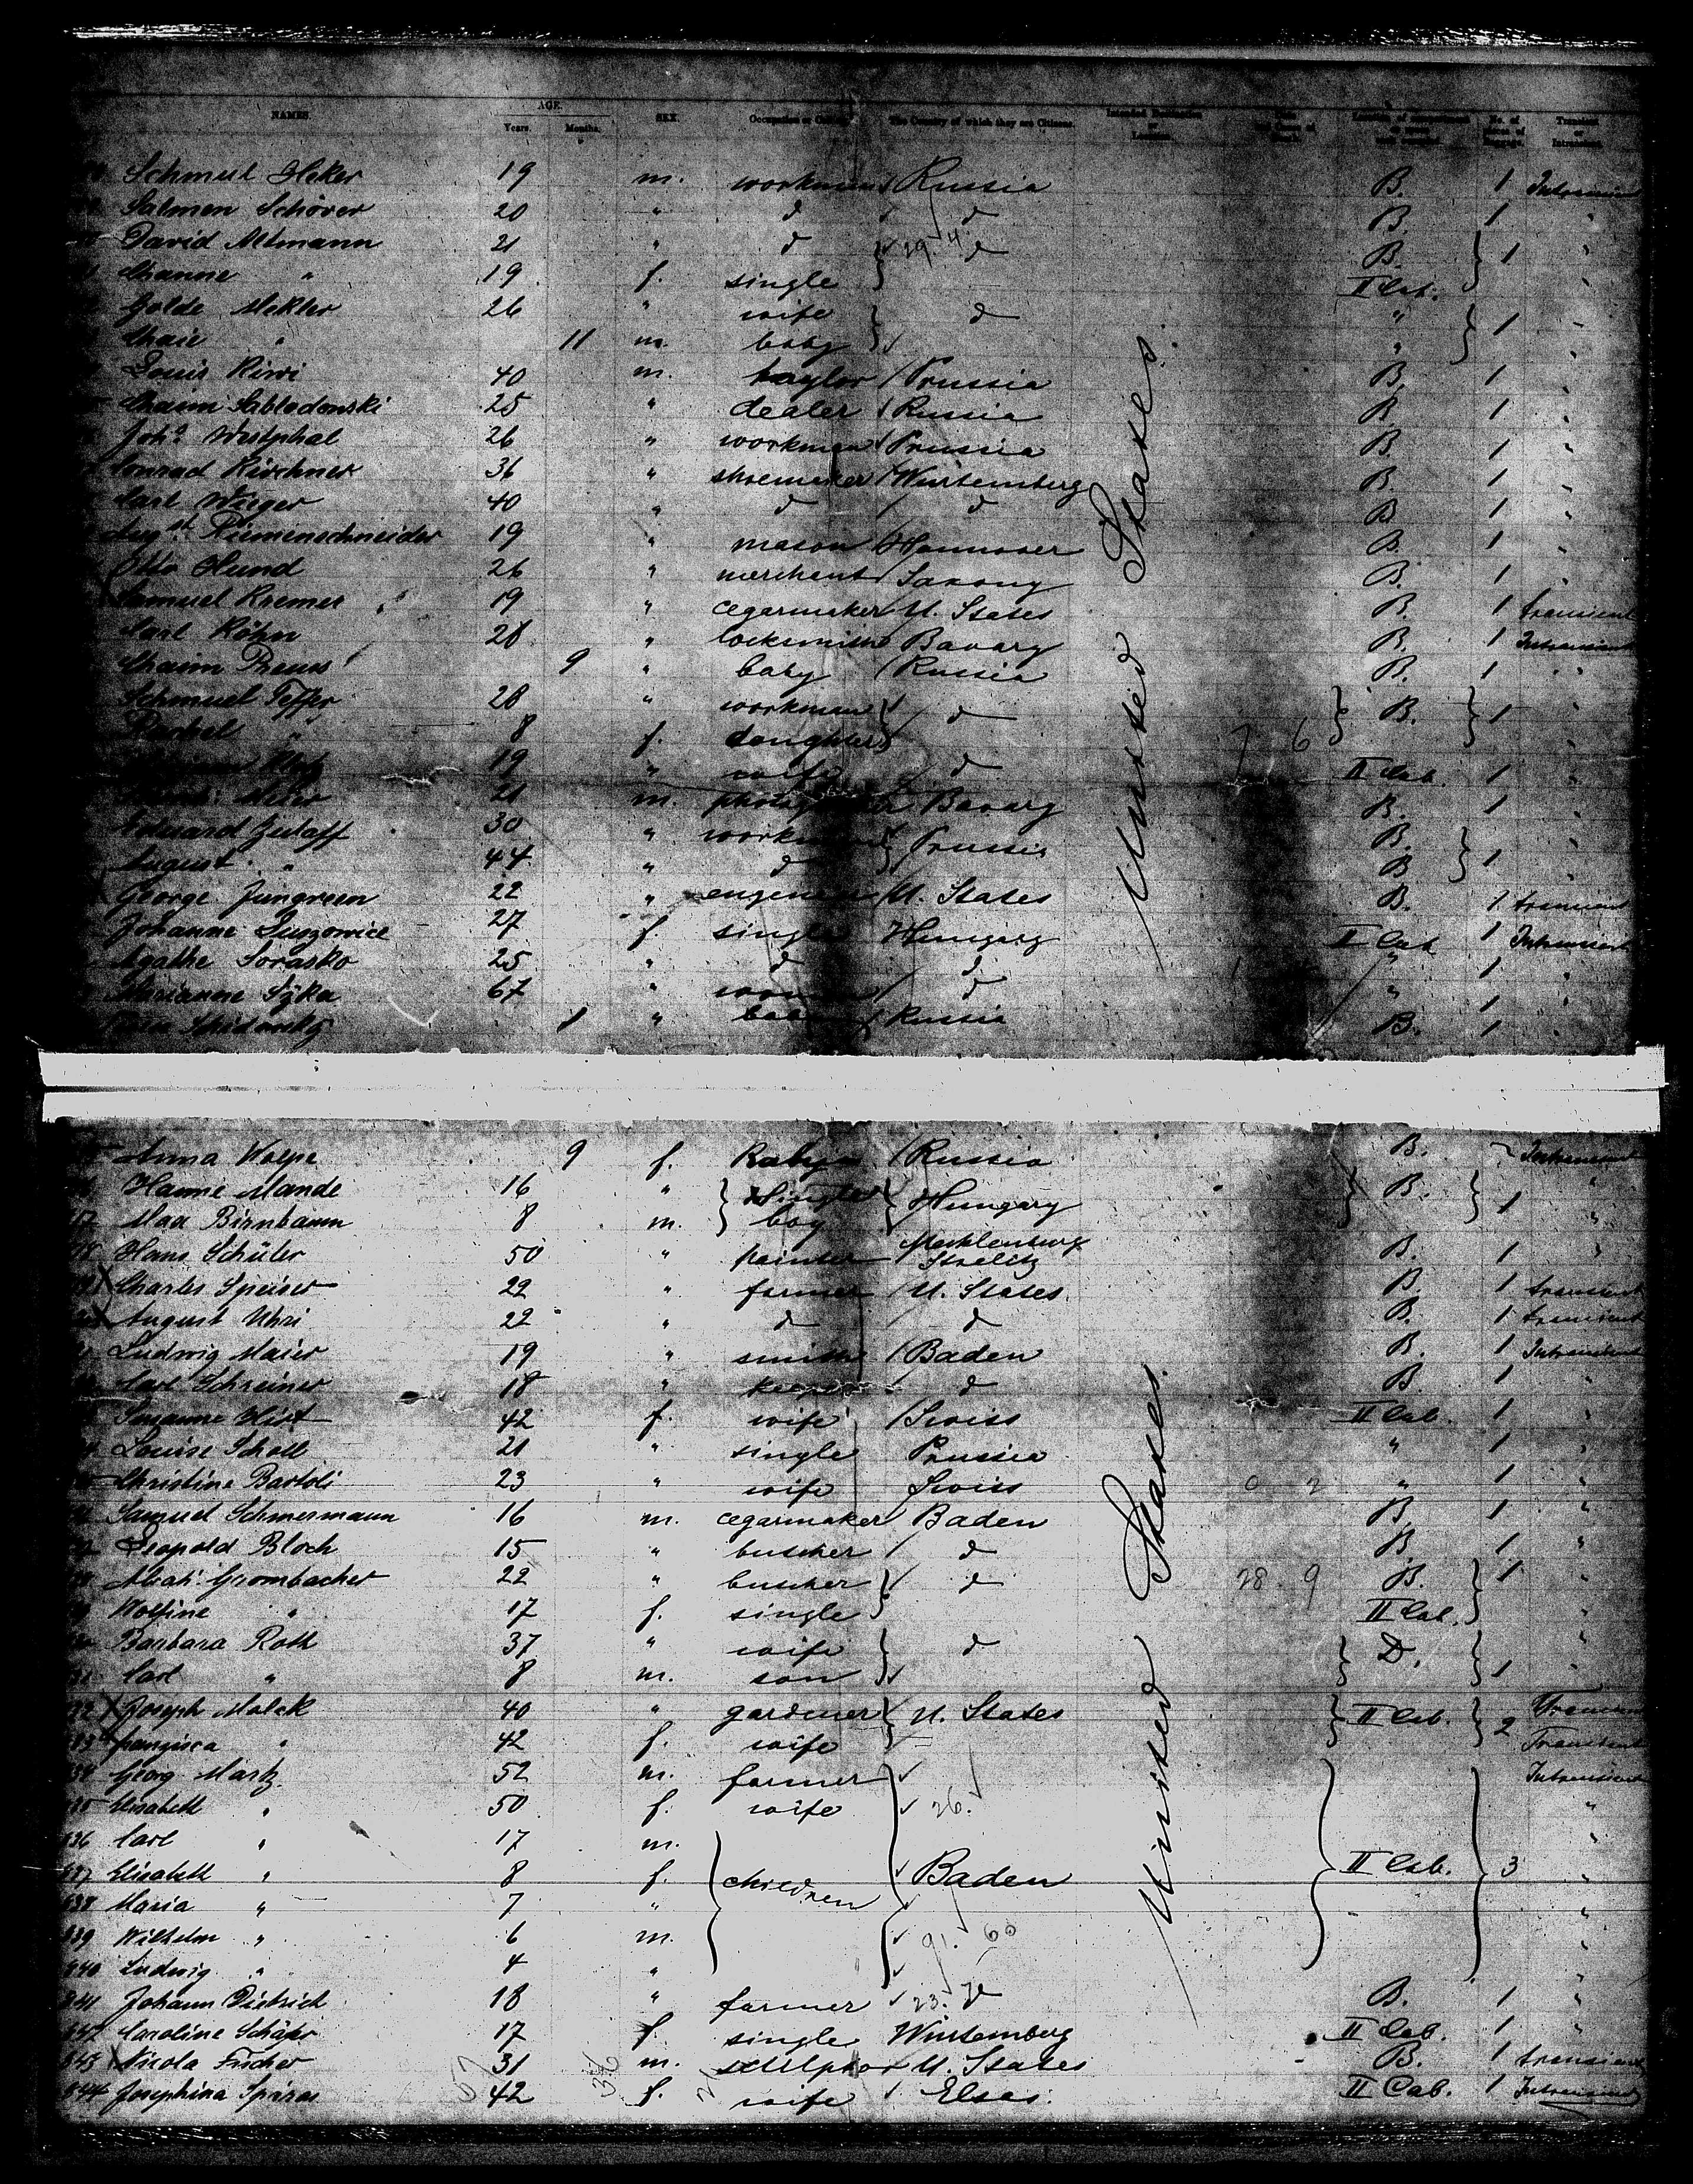 NAMES. AGE. Years. Months. SEX. Occupation or The Country of which they are Citizens. Intended Destination or Location. No. of pieces of Baggage. Transient or Intransient
Schmul Heker 19 m. workman Russia B. 1 Intransient
Salmen Schörer 20 " d d B. 1 "
David Altmann 21 " d 29. 4 d B. 1 "
Channe " 19 f. single II Cab.
Golde Mekler 26 " wife d " 1 "
Chaie " 11 m. baby " "
Louis Kiwi 40 m. taylor Prussia B. 1 "
Chaim Sablodowski 25 " dealer Russia B. 1 "
Joh. Westphal 26 " workman Prussia B. 1 "
Conrad Kirchner 36 " shoemaker Würtemberg B. 1 "
Carl Wieger 40 " d d B 1 "
Augst. Riemenschneider 19 " mason Hannover B. 1 "
Otto Hund 26 " merchant Saxony B. 1 "
Samuel Kremer 19 " cegarmaker U. States B. 1 transient
Carl Köhn 28 " locksmith Bavary B. 1 Intransient
Chaim Preuss 9 " baby Russia B. 1 "
Schmuel Feffer 28 " workman d B. 1
Rachel " 8 f. daughter 7 6 "
19 " wife d II Cab. 1 "
Meier 21 m. Bavary B. 1 "
Eduard Zielaff 30 " workman Prussia B. 1 "
August " 44 " d B
George Jungreen 22 " engeneer U. States B. 1 transient
Johanne 27 f single Hungary II Cab 1 Intransient
Agathe Sorasko 25 " d d " 1 "
Marianne Syka 67 " woman d " 1 "
1 " baby Russia B. 1 "
United States.
Anna Wolpe 9 f. Baby Russia B. Intransient
Hanne Mande 16 " Single Hungary B. 1 "
Max Birnbaum 8 m. boy "
Hans Schüler 50 " painter Mecklenburg Strelitz B. 1 "
Charles Speiser 22 " farmer U. States B. 1 transient
August Uhri 22 " d d B. 1 transient
Ludwig Maier 19 " smith Baden B. 1 Intransient
Carl Schreiner 18 " d B. 1 "
Susanne Hirt 42 f. wife Swiss II Cab. 1 "
Louise Scholl 21 " single Prussia " 1 "
Christine Bartoli 23 " wife Swiss 0 2 " 1 "
Samuel Schmermann 16 m. cegarmaker Baden B. 1 "
Leopold Bloch 15 " butcher d B 1 "
Abrah. Grombacher 22 " butcher d 28. 9 B. 1 "
Wolfine " 17 f. single II Cab.
Barbara Roth 37 " wife d D. 1 "
Carl " 8 m. son "
Joseph Malek 40 " gardener U. States II Cab. 2 Transient
Franzisca " 42 f. wife Transient
Georg Martz 52 m. farmer Intransient
Elisabeth " 50 f. wife 26. "
836 Carl " 17 m. "
837 Elisabeth " 8 f. children Baden II Cab. 3 "
838 Maria " 7 " "
839 Wilhelm " 6 m. 9. 60 "
840 Ludwig " 4 "
841 Johann Dietrich 18 " farmer 23. d B. 1 "
842 Caroline Schäfer 17 f. single Würtemberg II Cab. 1 "
843 Nicola Fischer 31 m. sculptor U. States B. 1 transient
844 Josephina Spiras 42 f. wife Elsas. II Cab. 1 Intransient
United States.